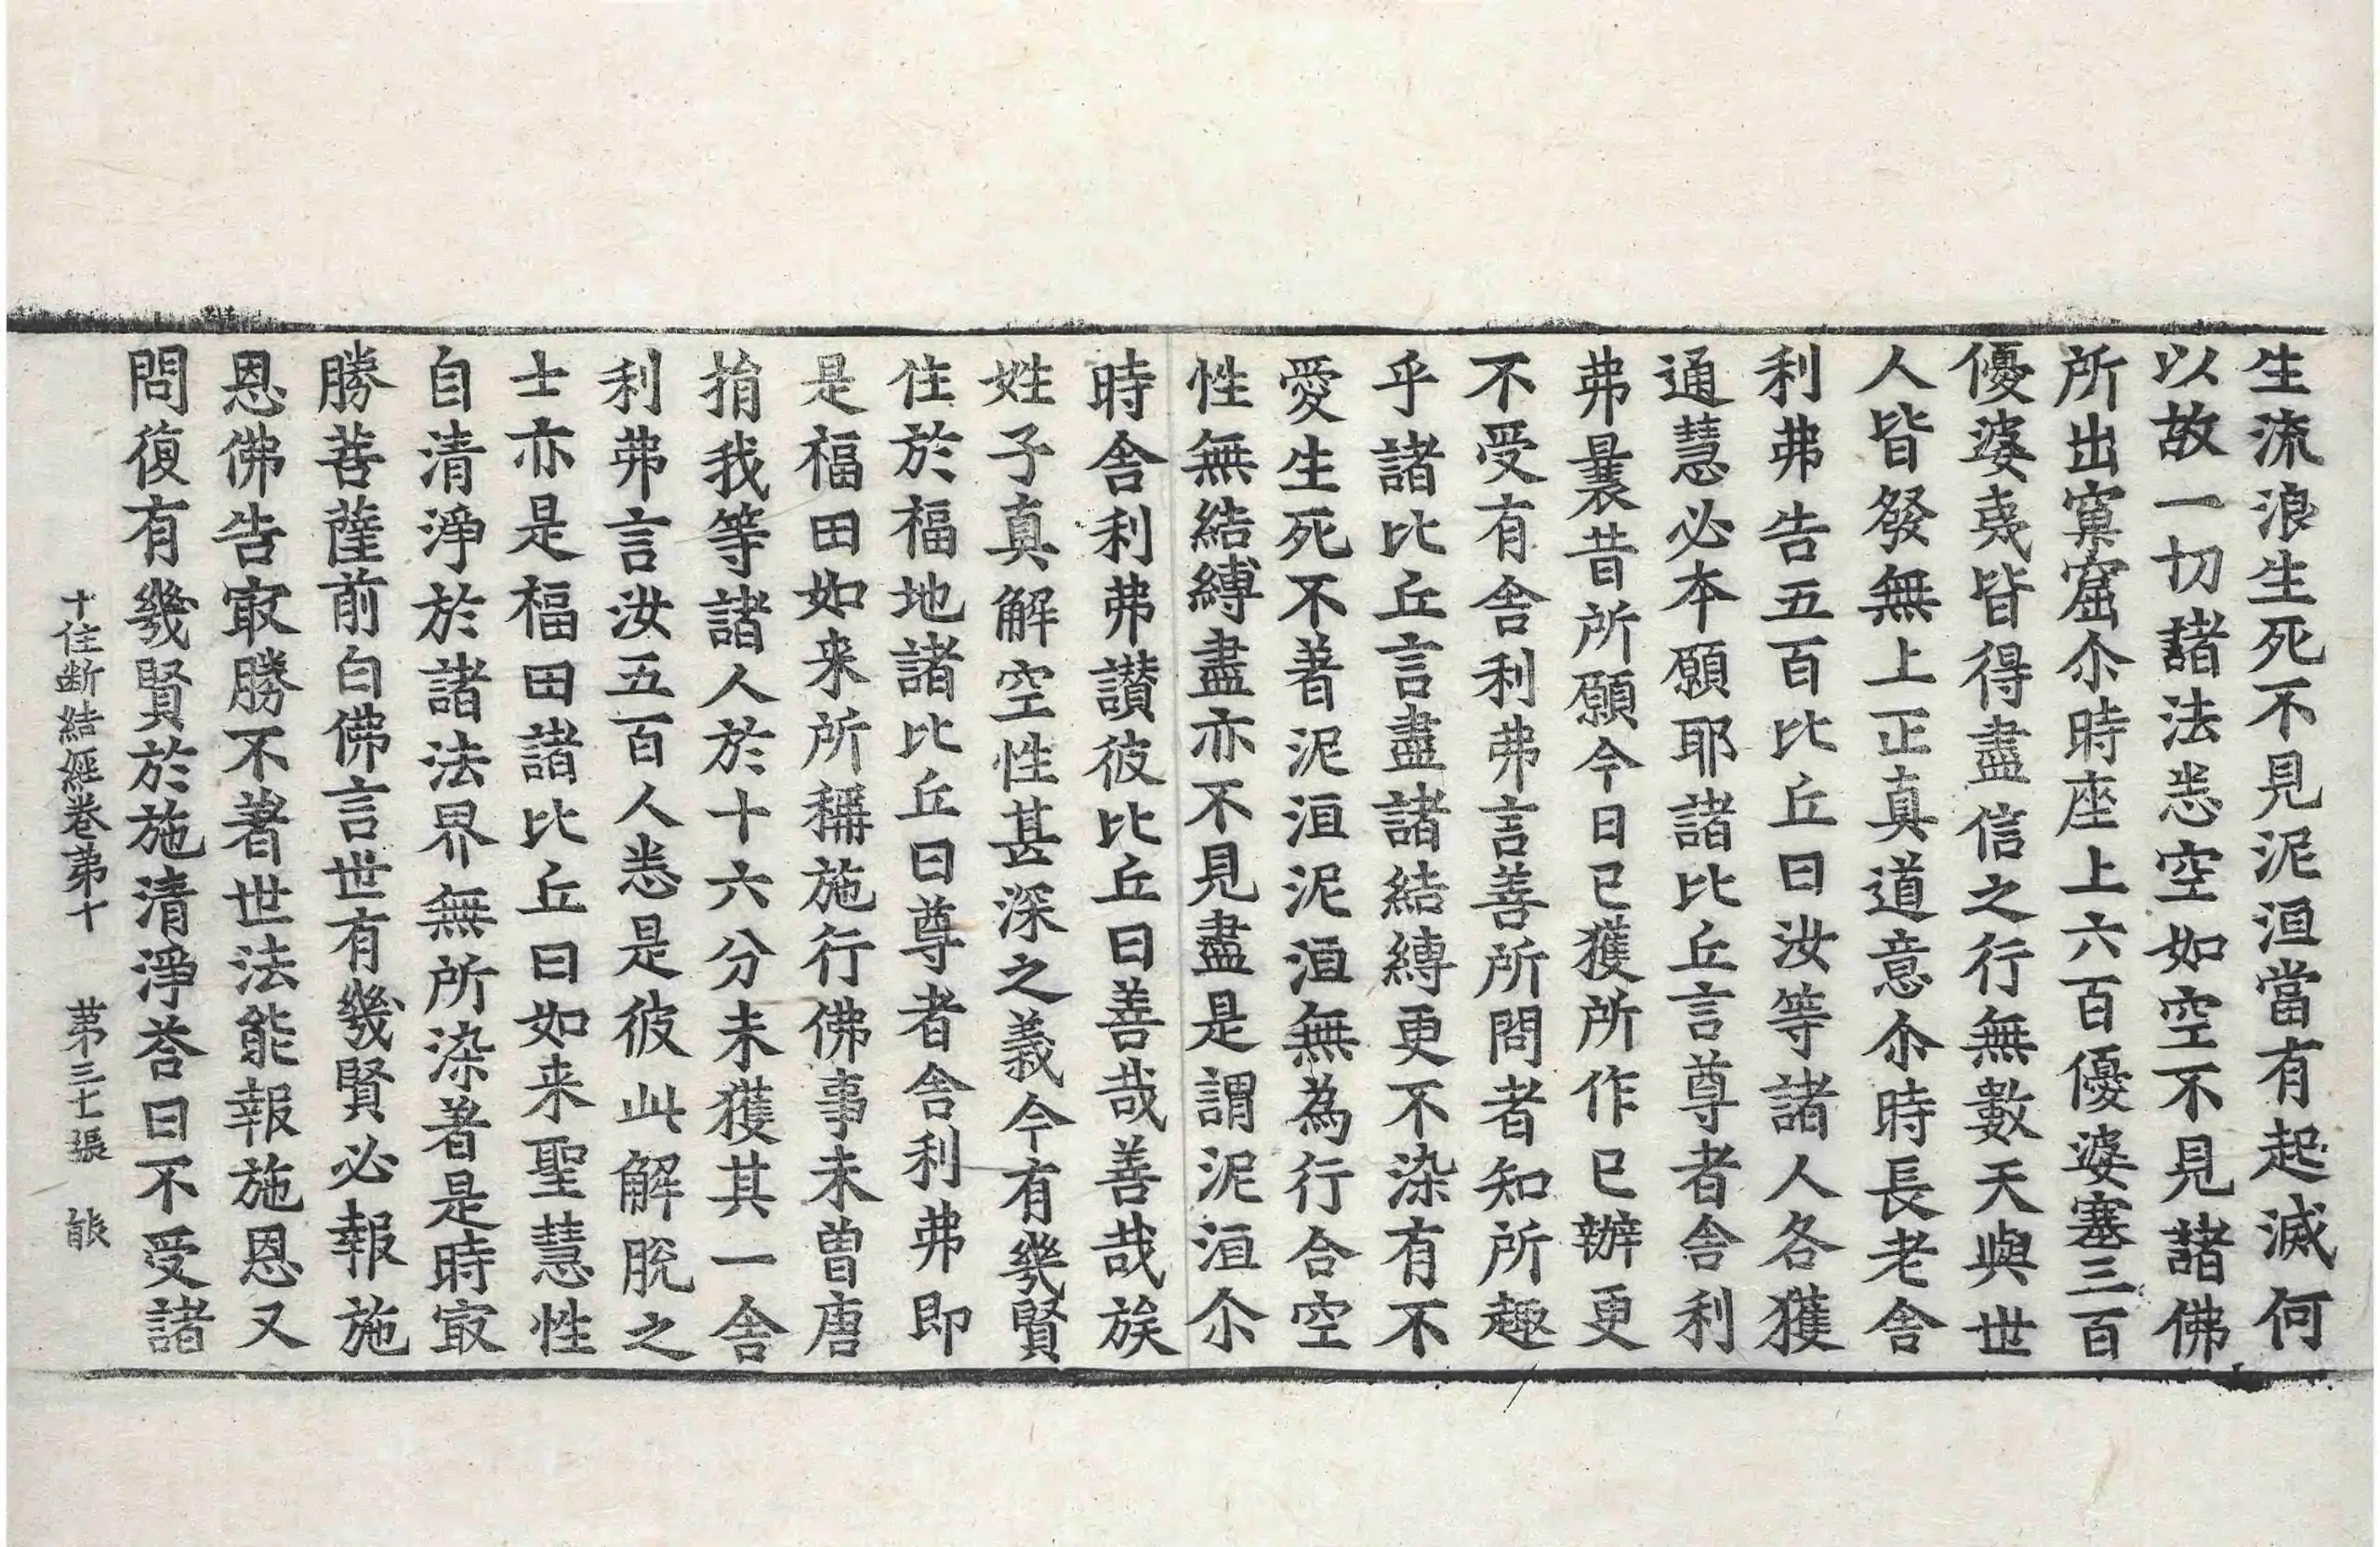 生流浪生死不見泥洹當有起滅何
以故一切諸法悉空如空不見諸佛
所出窠窟尒時座上六百優婆塞三百
優婆夷皆得盡信之行無數天與世
人皆發無上正真道意尒時長老舍
利弗告五百比丘曰汝等諸人各獲
通慧必本願耶諸比丘言尊者舍利
弗曩昔所願今日已獲所作已辦更
不受有舍利弗言善所問者知所趣
乎諸比丘言盡諸結縛更不染有不
愛生死不著泥洹泥洹無為行合空
性無結縛盡亦不見盡是謂泥洹尒
時舍利弗讃彼比丘曰善哉善哉族
姓子真解空性甚深之義今有幾賢
住於福地諸比丘曰尊者舍利弗即
是福田如来所稱施行佛事未曾唐
捐我等諸人於十六分未獲其一舍
利弗言汝五百人悉是彼此解脫之
士亦是福田諸比丘曰如来聖慧性
自清淨於諸法界無所染著是時㝡
勝菩薩前白佛言世有幾賢必報施
恩佛告㝡勝不著世法能報施恩又
問復有幾賢於施清淨荅曰不受諸
十住断結經卷苐十 苐三十七張 䏻